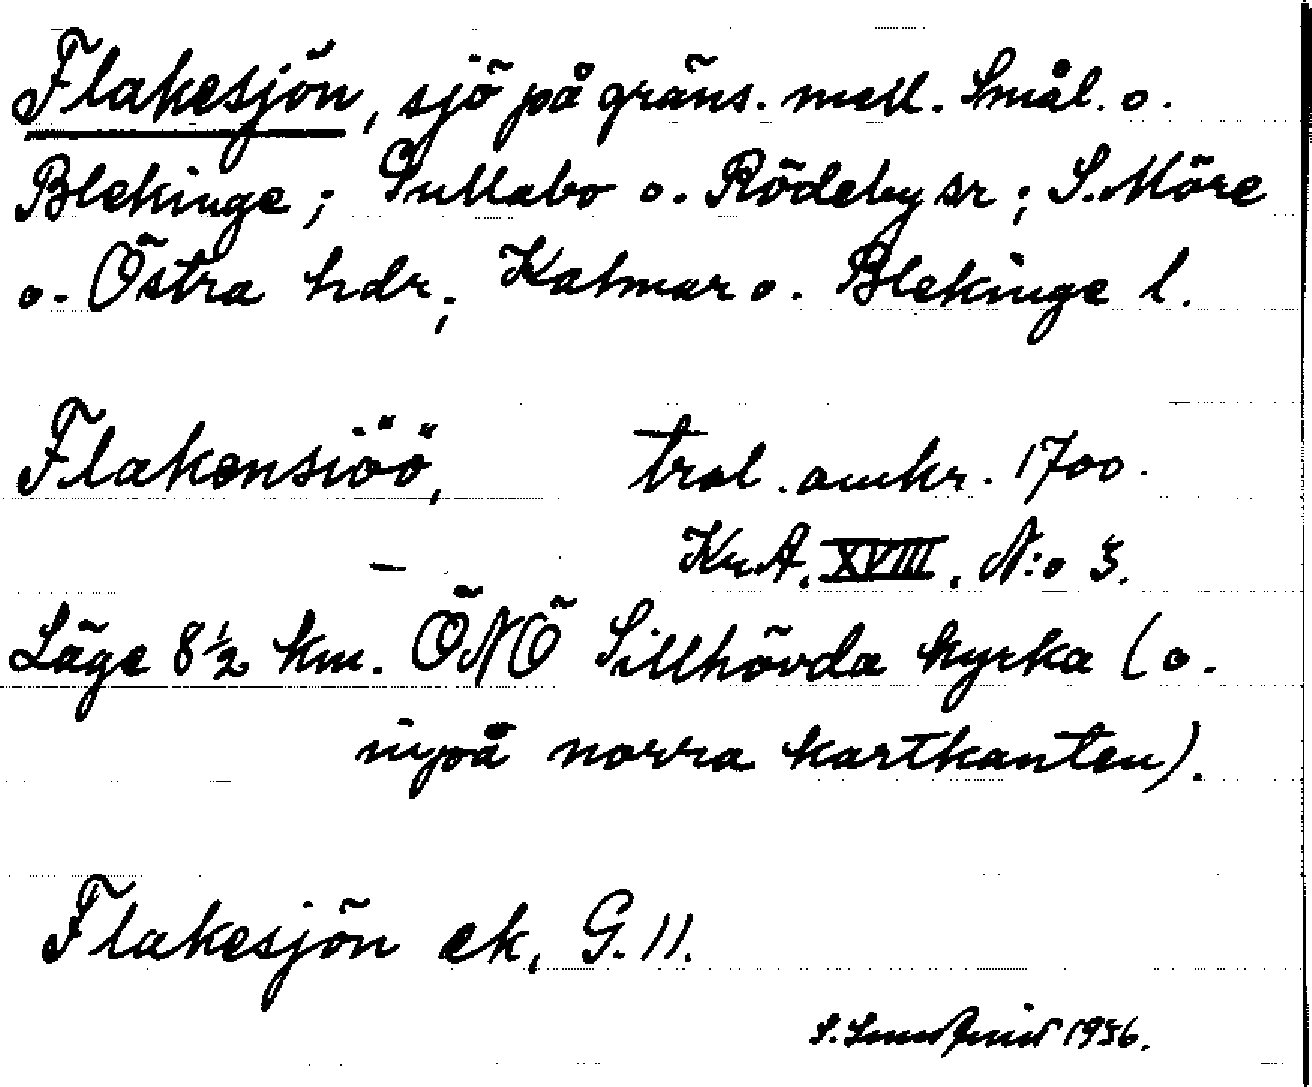 Flakesjön, sjö på gräns. mell. Smål. o.
Blekinge; Gullabo o. Rödeby sr; S. Möre
o. Östra hdr; Kalmar o. Blekinge l.
Flakensiöö, trol. omkr. 1700.
Kr.A. XVIII. N:o 3.
Läge 8½ km. ÖNÖ Sillhövda kyrka (o.
inpå norra kartkanten).
Flakesjön ek, G. 11.
S. 1936.